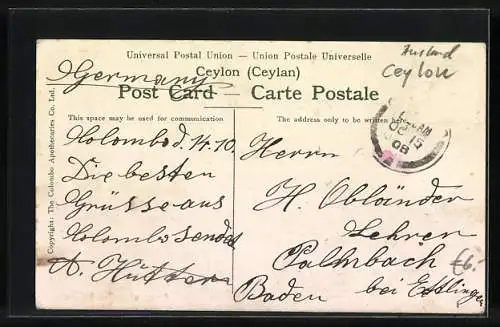 Universal Postal Union – Union Postale Universelle
Ausland
Ceylon
Germany
Ceylon (Ceylan)
Post Card — Carte Postale
This space may be used for communication
The address only to be written here
Copyright: The Colombo Apothecaries Co. Ltd.
Colombo d. 14.10.
Die besten
Grüsse aus
Colombo sendet
A. Hütter
Herrn
H. Obländer
Lehrer
Palmbach
bei Ettlingen
Baden
OC 15
08
€6.-